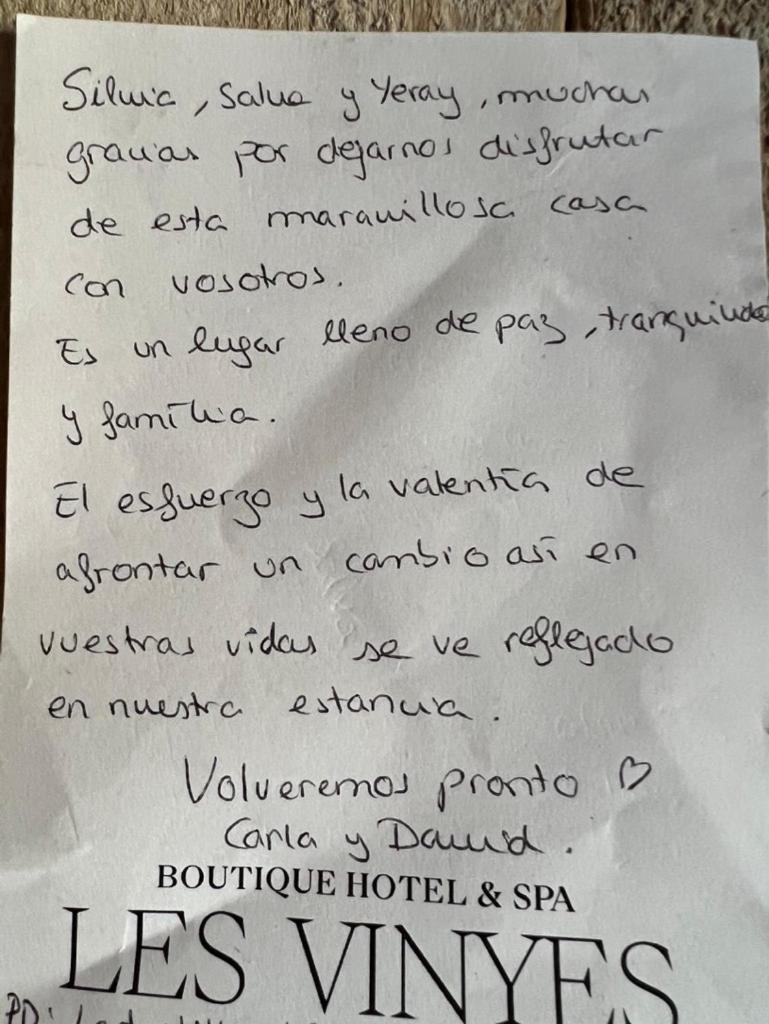 Silvia, Salva y Yeray, muchas
gracias por dejarnos disfrutar
de esta maravillosa casa
con vosotros.
Es un lugar lleno de paz, tranquilidad
y família.
El esfuerzo y la valentía de
afrontar un cambio así en
vuestras vidas se ve reflejado
en nuestra estancia.
Volveremos pronto ♡
Carla y David.
BOUTIQUE HOTEL & SPA
LES VINYES
PD: